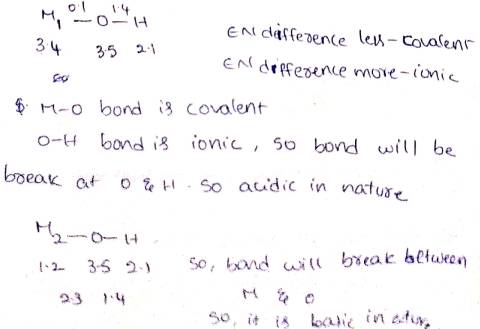 0.1 1.4
M1 — O — H
3.4 3.5 2.1
EN difference less - covalent
EN difference more - ionic
so
M-O bond is covalent
O-H bond is ionic, so bond will be
break at O & H. so acidic in nature
M2 — O — H
1.2 3.5 2.1
2.3 1.4
so, bond will break between
M & O
so, it is basic in